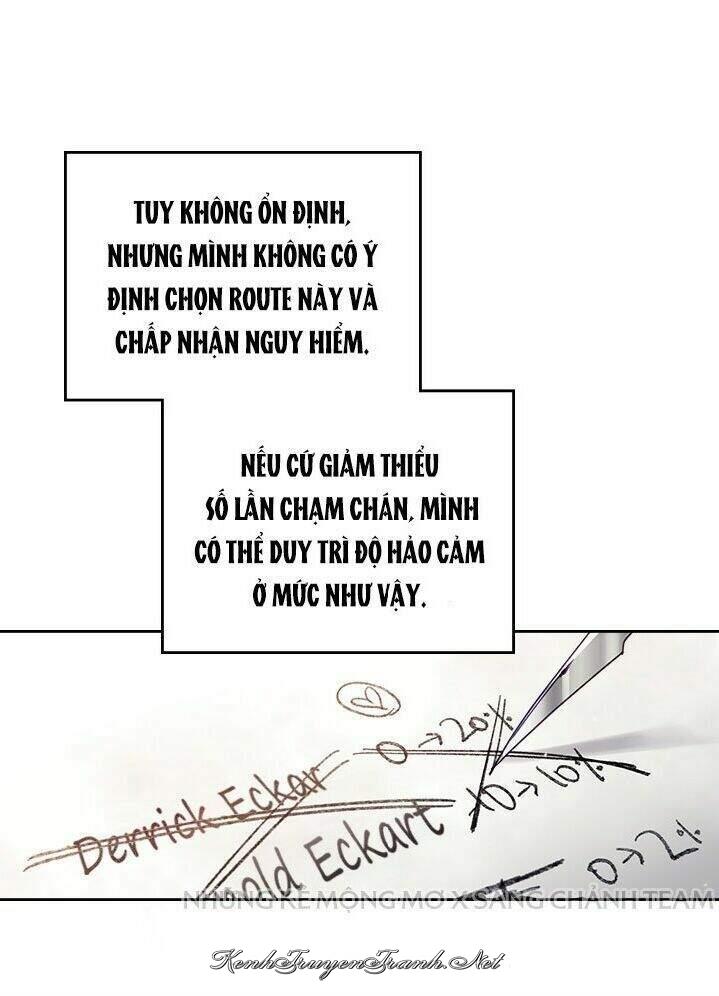 TUY KHÔNG ỔN ĐỊNH,
NHƯNG MÌNH KHÔNG CÓ Ý
ĐỊNH CHỌN ROUTE NÀY VÀ
CHẤP NHẬN NGUY HIỂM.
NẾU CỨ GIẢM THIỂU
SỐ LẦN CHẠM CHÁN, MÌNH
CÓ THỂ DUY TRÌ ĐỘ HẢO CẢM
Ở MỨC NHƯ VẬY.
0→20%
Derrick Eckar
→10%
old Eckart
0→2%
NHỮNG KẺ MỘNG MƠ X SANG CHẢNH TEAM
KenhTruyenTranh.Net